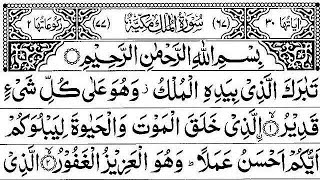 اٰیَاتُهَا ۳۰ (۶۷) سُوْرَةُ الْمُلْكِ مَكِّیَّةٌ (۷۷) رُكُوْعَاتُهَا ۲
بِسْمِ اللّٰهِ الرَّحْمٰنِ الرَّحِیْمِ
تَبٰرَكَ الَّذِیْ بِیَدِهِ الْمُلْكُ ز وَهُوَ عَلٰی كُلِّ شَیْءٍ
قَدِیْرُ ۝۱ الَّذِیْ خَلَقَ الْمَوْتَ وَالْحَیٰوةَ لِیَبْلُوَكُمْ
اَیُّكُمْ اَحْسَنُ عَمَلًا ؕ وَهُوَ الْعَزِیْزُ الْغَفُوْرُ ۝۲ الَّذِیْ